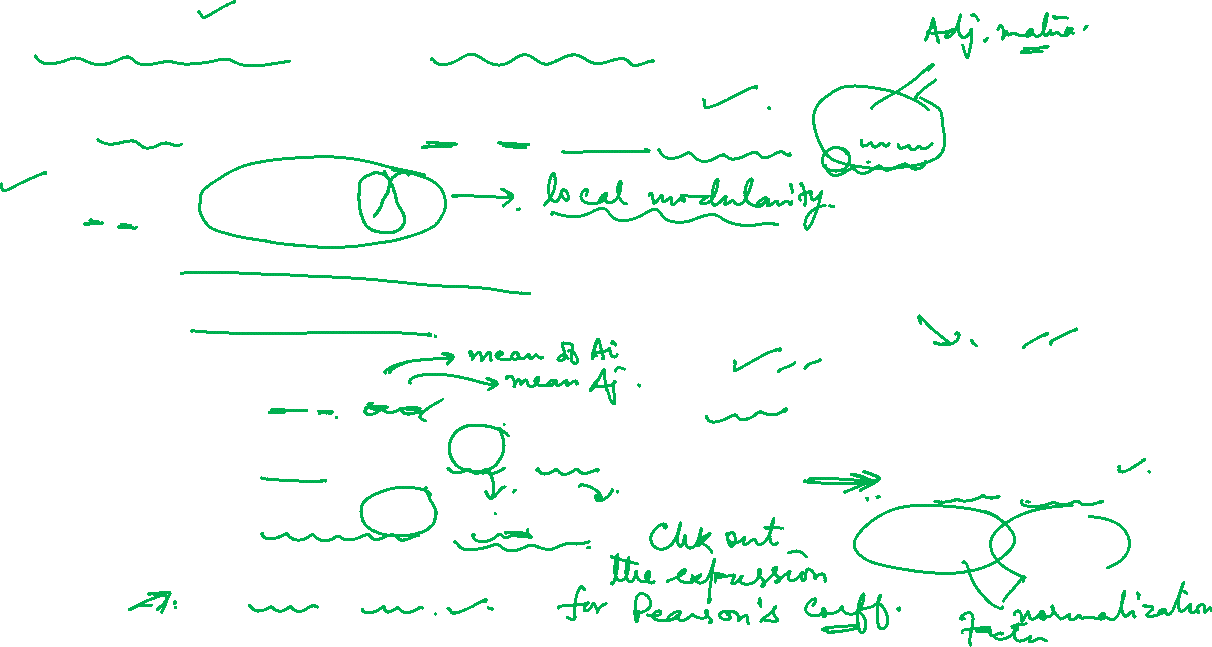 Adj. matrix.
local modularity.
mean of Ai
mean Aj.
Chk out
the expression
for Pearson's Coeff.
normalization
Factor